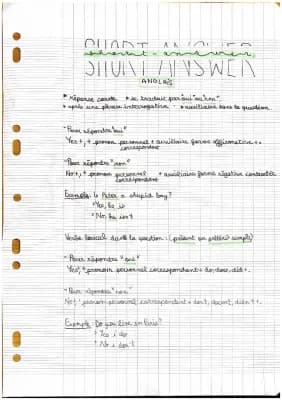 SHORT ANSWER
short - answer
ANGLAIS
* réponse courte * se traduit par "oui" ou "non".
* après une phrase interrogative * auxiliaire dans la question
- Pour répondre "oui"
Yes + , + pronom personnel + auxiliaire forme affirmative + .
correspondant
- Pour répondre "non"
No + , + pronom personnel + auxiliaire forme négative contractée
correspondant
Exemple: Is Peter a stupid boy?
* Yes, he is
* No, he isn't
Verbe lexical dans la question : (présent ou prétérit simple)
- Pour répondre "oui"
Yes, + pronom personnel correspondant + do, does, did + .
- Pour répondre "non"
No, + pronom personnel correspondant + don't, doesn't, didn't + .
Exemple: Do you live in Paris?
* Yes I do
* No I don't